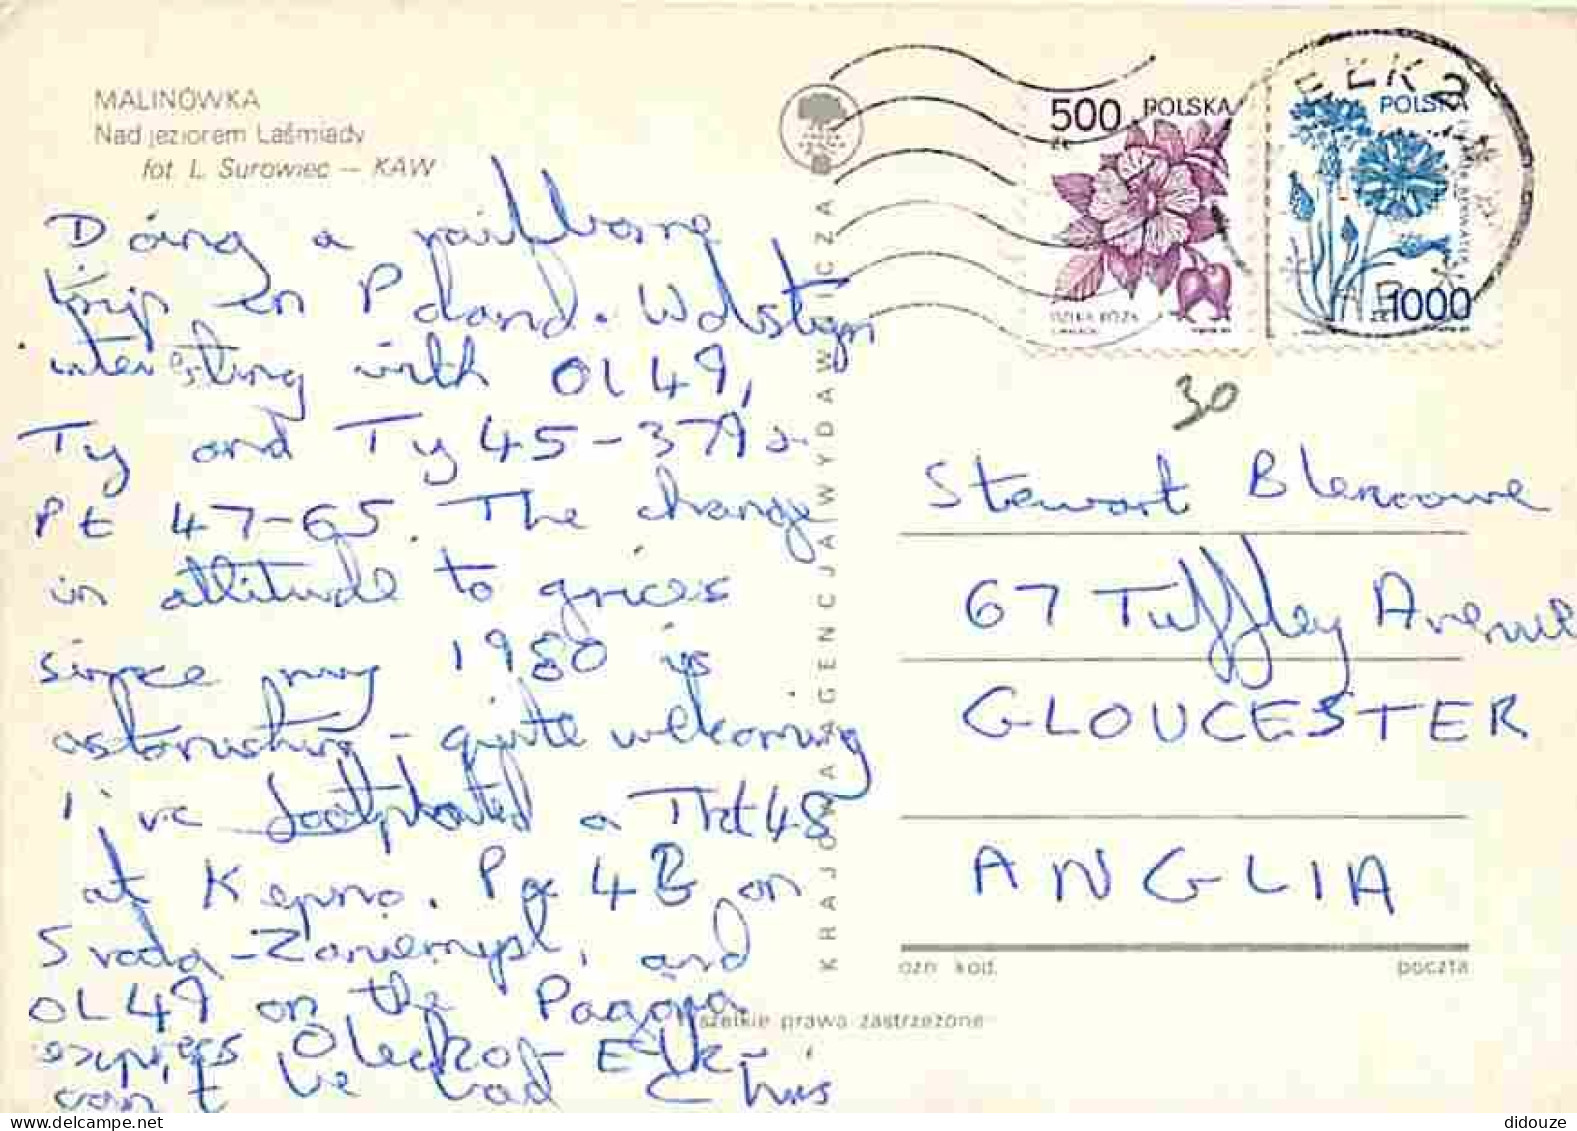 MALINÓWKA
Nad jeziorem Laśmiady
fot L. Surowiec — KAW
Doing a railborne
trip in Poland. Wolsztyn
interesting with OL49,
Ty and Ty 45-379 &
Pt 47-65. The change
in attitude to gricers
since my 1980 is
astonishing - quite welcoming
I've footplated a Tkt48
at Kepno. Px 48 on
Sroda-Zaniemysl, and
OL49 on the
express Olecko - Elk -
can't be bad Chris
KRAJOWA AGENCJA WYDAWNICZA
500 POLSKA
zł
DZIKA RÓŻA
POLSKA
zł 1000
EŁK 2
30
Stewart Blencowe
67 Tuffley Avenue
GLOUCESTER
ANGLIA
ozn. kod.
poczta
Wszelkie prawa zastrzeżone
didouze